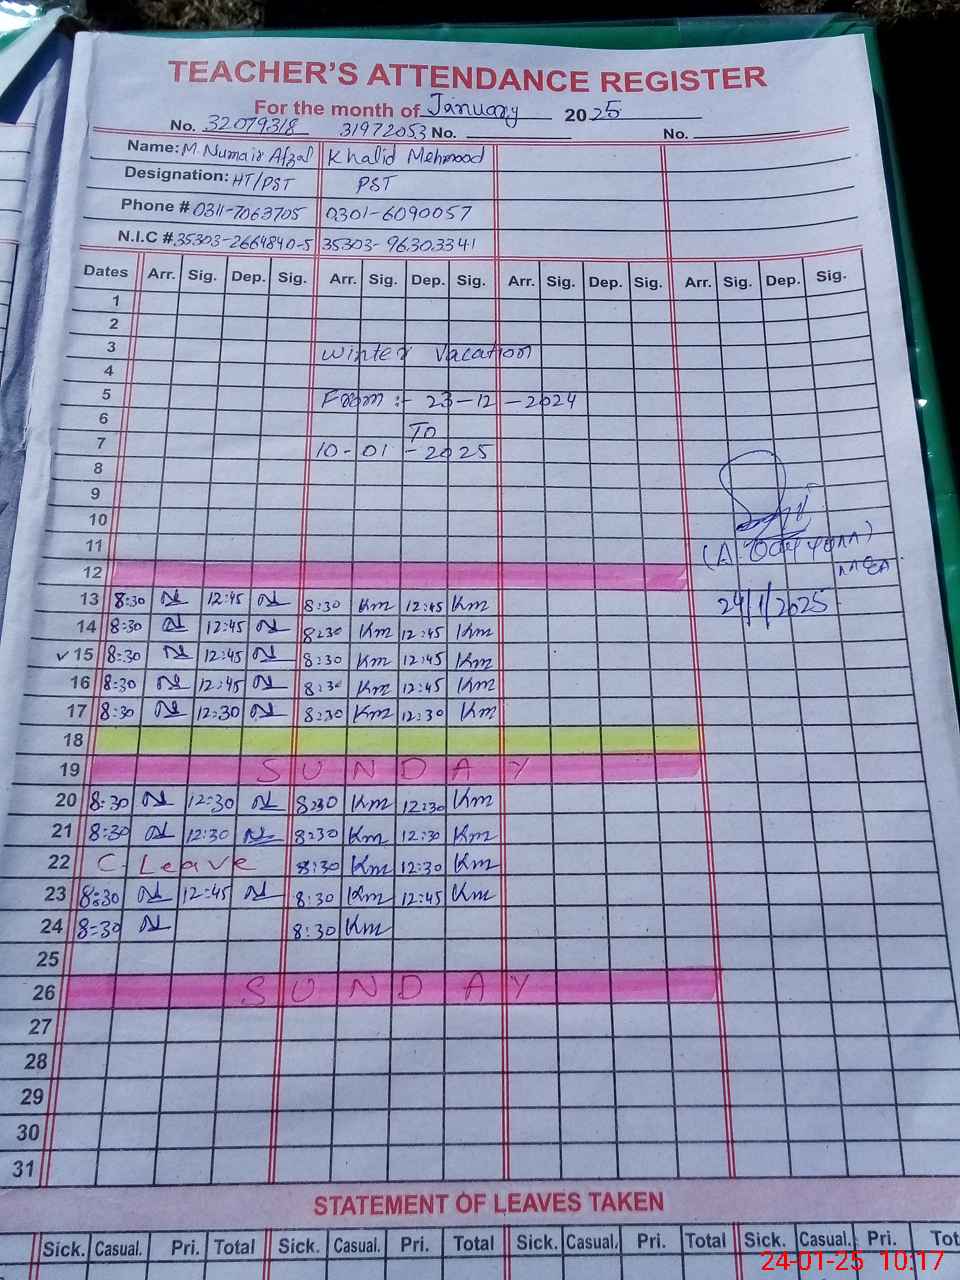 TEACHER'S ATTENDANCE REGISTER
For the month of January 2025
No. 32079318 31972053 No. No.
Name: M. Numair Afzal Khalid Mehmood
Designation: HT/PST PST
Phone # 0311-7063705 0301-6090057
N.I.C # 35303-2664840-5 35303-96303341
Dates Arr. Sig. Dep. Sig. Arr. Sig. Dep. Sig. Arr. Sig. Dep. Sig. Arr. Sig. Dep. Sig.
1
2
3 Winter Vacation
4
5 From :- 23-12-2024
6 To
7 10-01-2025
8
9
10
11
12
13 8:30 12:45 8:30 Km 12:45 Km
24/1/2025
14 8:30 12:45 8:30 Km 12:45 Km
✓ 15 8:30 12:45 8:30 Km 12:45 Km
16 8:30 12:45 8:30 Km 12:45 Km
17 8:30 12:30 8:30 Km 12:30 Km
18
19 SUNDAY
20 8:30 12:30 8:30 Km 12:30 Km
21 8:30 12:30 8:30 Km 12:30 Km
22 C-Leave 8:30 Km 12:30 Km
23 8:30 12:45 8:30 Km 12:45 Km
24 8:30 8:30 Km
25
26 SUNDAY
27
28
29
30
31
STATEMENT OF LEAVES TAKEN
Sick. Casual. Pri. Total Sick. Casual. Pri. Total Sick. Casual. Pri. Total Sick. Casual. Pri. Tot
24-01-25 10:17